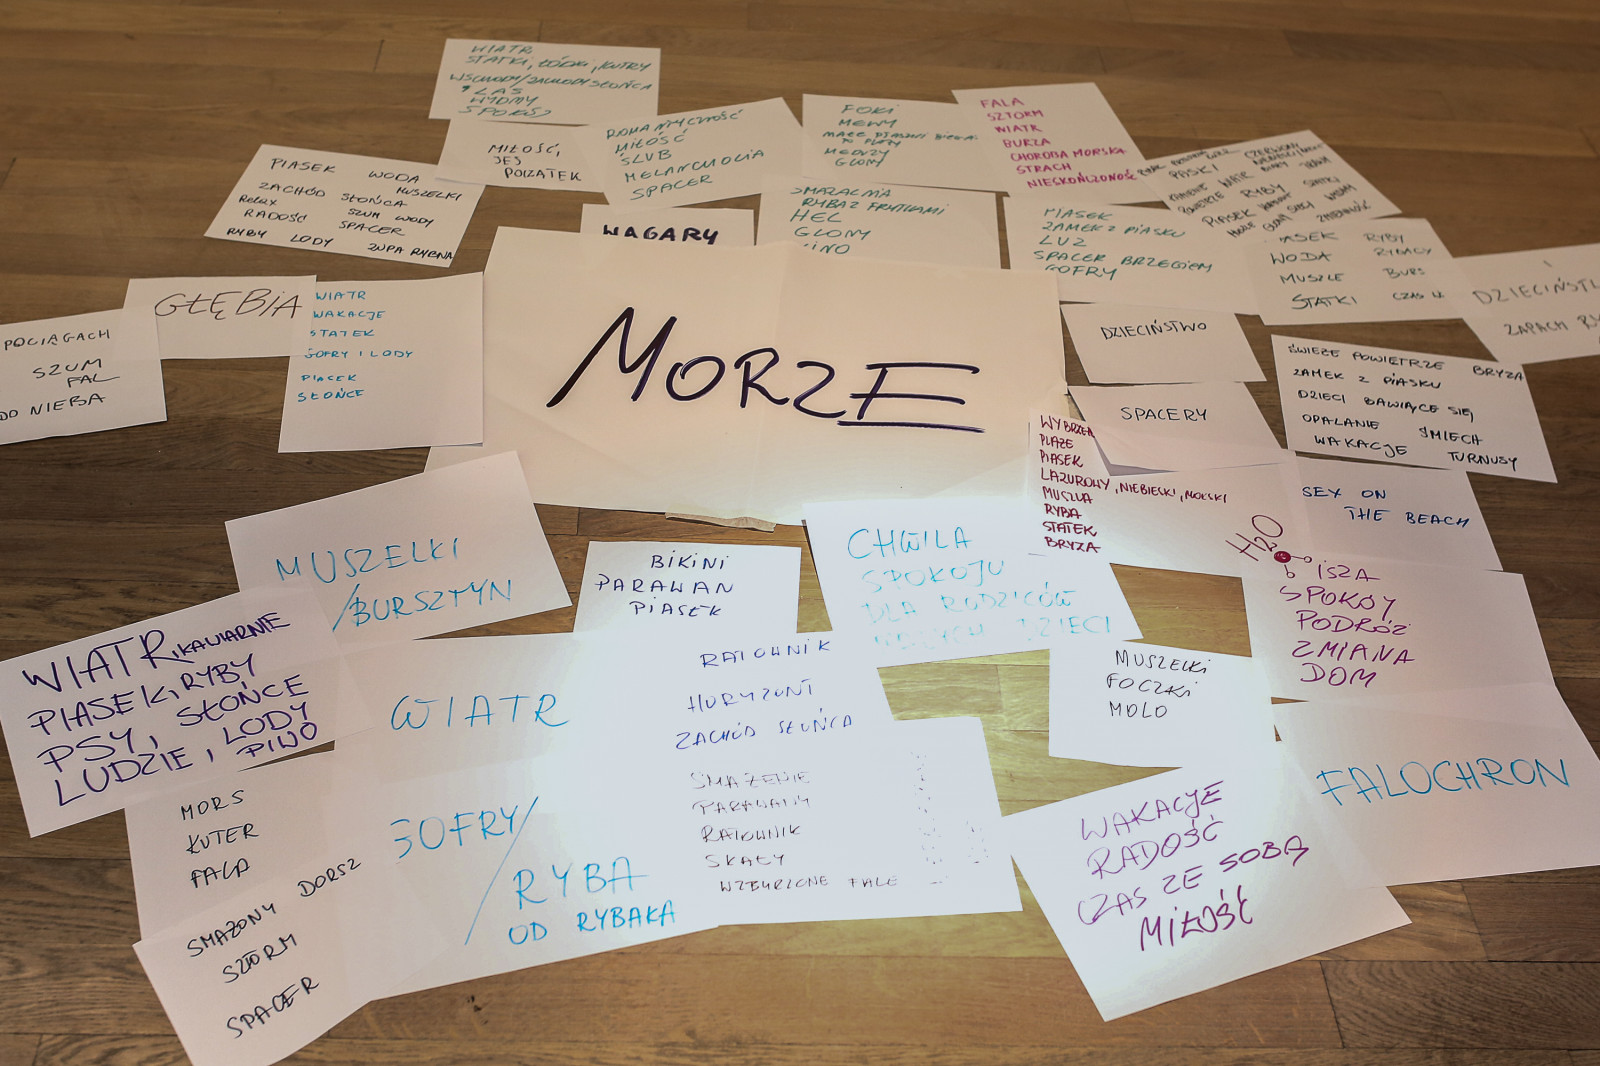 WIATR
STATKI, ŁÓDKI, KUTRY
WSCHODY/ZACHODY SŁOŃCA
LAS
WYDMY
SPOKÓJ
MIŁOŚĆ,
JEJ
POCZĄTEK
ROMANTYCZNOŚĆ
MIŁOŚĆ
ŚLUB
MELANCHOLIA
SPACER
FOKI
MEWY
MEDUZY
GLONY
FALA
SZTORM
WIATR
BURZA
CHOROBA MORSKA
STRACH
NIESKOŃCZONOŚĆ
PIASEK WODA
MUSZELKI
ZACHÓD SŁOŃCA
Relax SZUM WODY
RADOŚĆ SPACER
RYBY LODY ZUPA RYBNA
WAGARY
SMAŻALNIA
RYBA Z FRYTKAMI
HEL
GLONY
PIASEK
ZAMEK Z PIASKU
LUZ
SPACER BRZEGIEM
GOFRY
PIASKI
WIATR
RYBY STATKI
PIASEK
PIASEK RYBY
WODA RYBACY
MUSZLE BURS
STATKI CZAS W
DZIECIŃST
ZAPACH RY
POCIĄGACH
SZUM
FAL
DO NIEBA
GŁĘBIA
WIATR
WAKACJE
STATEK
GOFRY I LODY
PIASEK
SŁOŃCE
MORZE
DZIECIŃSTWO
SPACERY
ŚWIEŻE POWIETRZE BRYZA
ZAMEK Z PIASKU
DZIECI BAWIĄCE SIĘ
OPALANIE ŚMIECH
WAKACJE TURNUSY
WYBRZEŻ
PLAŻE
PIASEK
LAZUROWY, NIEBIESKI, MORSKI
MUSZLA
RYBA
STATEK
BRYZA
SEX ON
THE BEACH
MUSZELKI
/BURSZTYN
BIKINI
PARAWAN
PIASEK
CHWILA
SPOKOJU
DLA RODZICÓW
DZIECI
H2O
CISZA
SPOKÓJ
PODRÓŻ
ZMIANA
DOM
WIATR, KAWIARNIE
PIASEK, RYBY
PSY, SŁOŃCE
LUDZIE, LODY
PIWO
WIATR
RATOWNIK
HORYZONT
ZACHÓD SŁOŃCA
MUSZELKI
FOCZKI
MOLO
FALOCHRON
MORS
KUTER
FALA
GOFRY/
RYBA
OD RYBAKA
SMAŻENIE
PARAWANY
RATOWNIK
SKAŁY
WZBURZONE FALE
WAKACJE
RADOŚĆ
CZAS ZE SOBĄ
MIŁOŚĆ
SMAŻONY DORSZ
SZTORM
SPACER